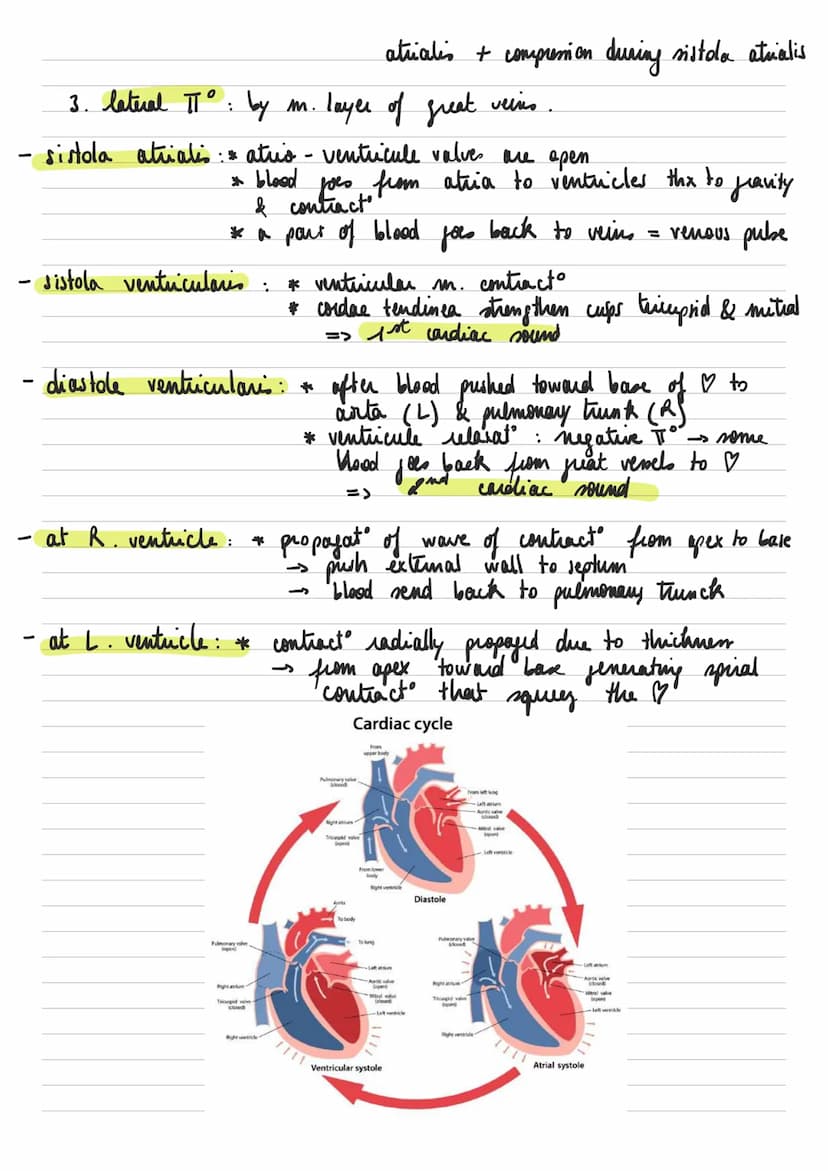 atrialis + compression during sistola atrialis
3. lateral π° : by m. layer of great veins.
- sistola atrialis : * atrio - ventricule valves are open
* blood goes from atria to ventricles thx to gravity
& contract°
* a part of blood goes back to veins = venous pulse
- sistola ventricularis : * ventricular m. contract°
* cordae tendinea strengthen cusps tricuspid & mitral
=> 1st cardiac sound
- diastole ventricularis : * after blood pushed toward base of ♡ to
aorta (L) & pulmonary trunk (R)
* ventricule relaxat° : negative π° → some
blood goes back from great vessels to ♡
=> 2nd cardiac sound
- at R. ventricle : * propagat° of wave of contract° from apex to base
→ push external wall to septum
→ blood send back to pulmonary trunck
- at L. ventricle : * contract° radially propaged due to thickness
→ from apex toward base generating spiral
contract° that squeez the ♡
Cardiac cycle
From
upper body
Pulmonary valve
(closed)
Right atrium
Tricuspid valve
(open)
From lower
body
Right ventricle
From left lung
Left atrium
Aortic valve
(closed)
Mitral valve
(open)
Left ventricle
Diastole
Aorta
To body
Pulmonary valve
(open)
To lung
Left atrium
Aortic valve
(open)
Mitral valve
(closed)
Left ventricle
Right atrium
Tricuspid valve
(closed)
Right ventricle
Ventricular systole
Pulmonary valve
(closed)
Left atrium
Aortic valve
(closed)
Mitral valve
(open)
Left ventricle
Right atrium
Tricuspid valve
(open)
Right ventricle
Atrial systole